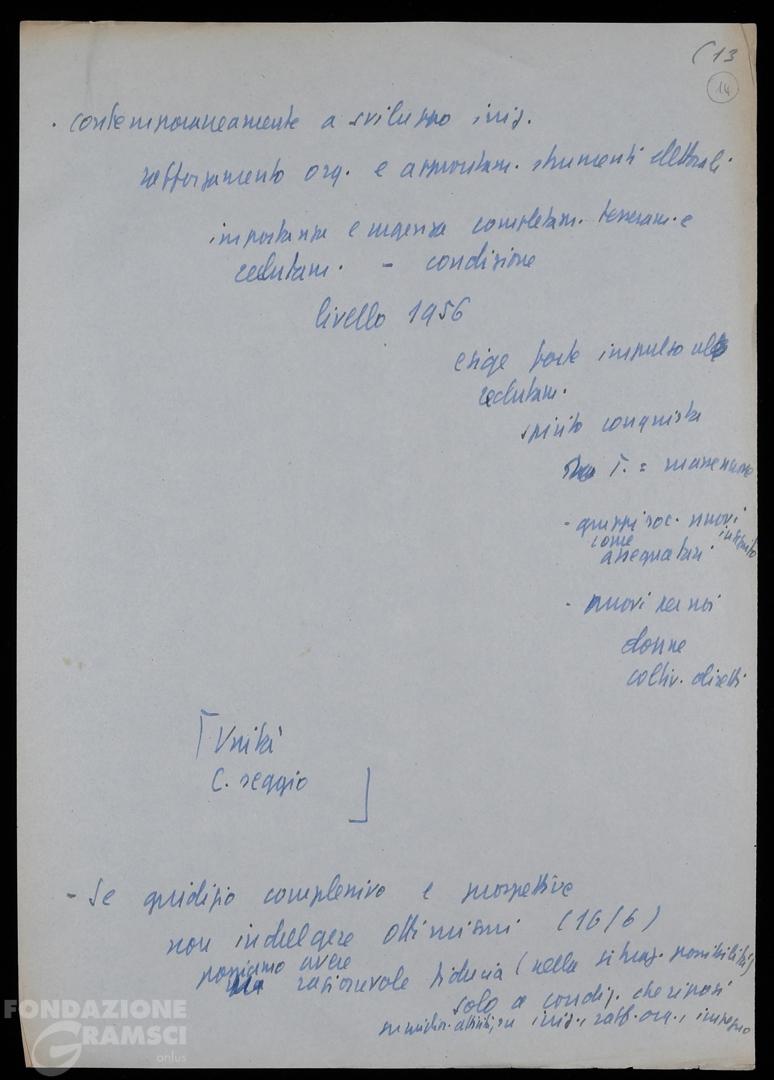 (13
14
· contemporaneamente a sviluppo iniz.
rafforzamento org. e approntam. strumenti elettorali.
importanza e urgenza completam. tesseram. e
reclutam. - condizione
livello 1956
esige forte impulso al
reclutam.
spirito conquista
T. =
- gruppi soc. nuovi
come
assegnatari
- nuovi per noi
donne
coltiv. diretti
Unità
C. seggio
- Se giudizio complessivo e prospettive
non indulgere ottimismi (16/6)
possiamo avere
ragionevole fiducia (nella situaz. possibilità)
solo a condiz. che si basi
su iniz., raff. org., impegno
FONDAZIONE
GRAMSCI
onlus